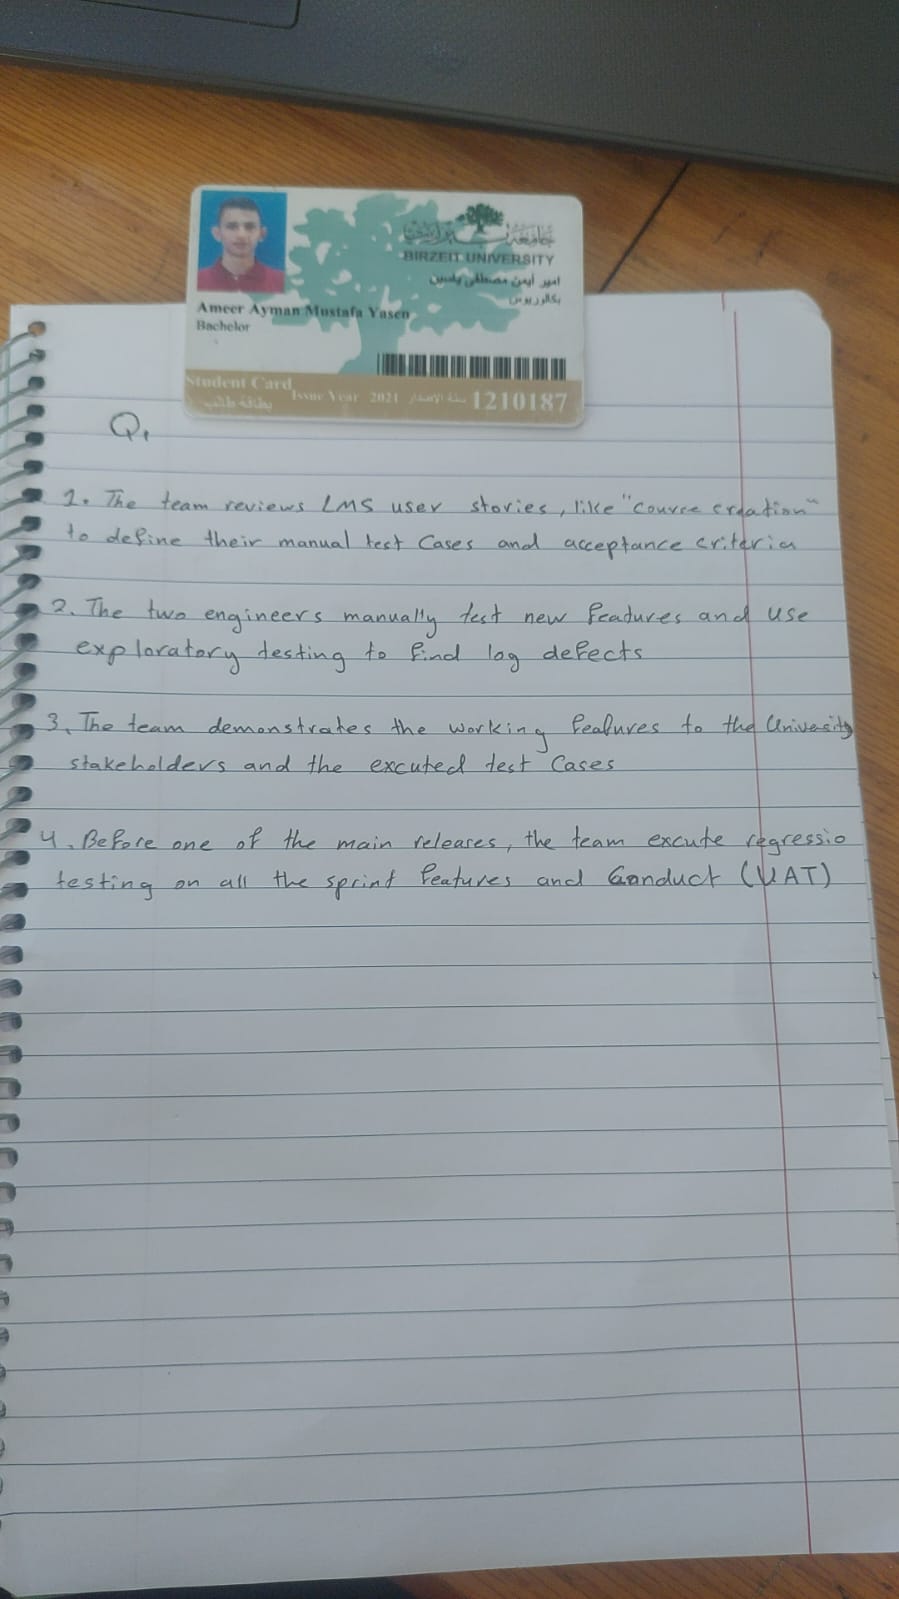 جامعة بيرزيت
BIRZEIT UNIVERSITY
امير أيمن مصطفى ياسين
بكالوريوس
Ameer Ayman Mustafa Yasen
Bachelor
Student Card Issue Year 2021 سنة الإصدار 1210187
بطاقة طالب
Q1
1. The team reviews LMS user stories, like "course creation"
to define their manual test Cases and acceptance criteria
2. The two engineers manually test new features and use
exploratory testing to find log defects
3. The team demonstrates the working features to the University
stakeholders and the excuted test Cases
4. Before one of the main releases, the team excute regressio
testing on all the sprint features and Conduct (UAT)